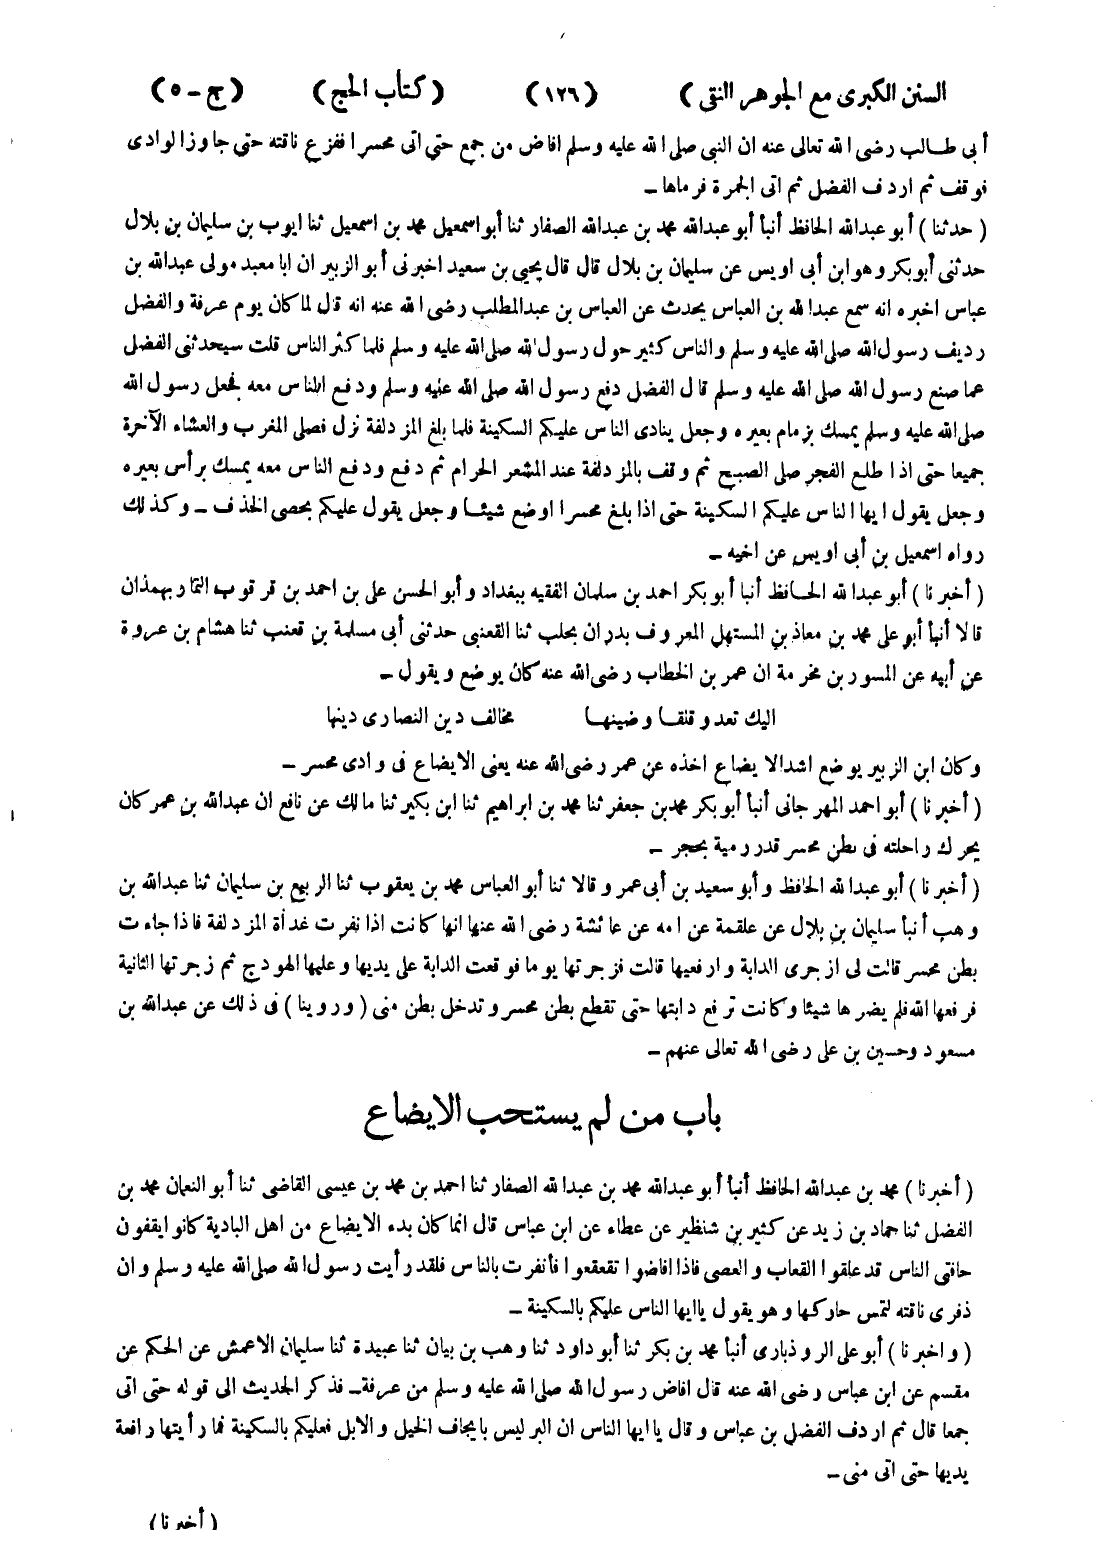 السنن الكبرى مع الجوهر النقى ) ( ١٢٦ ) ( كتاب الحج ) ( ج - ٥ )
أبى طالب رضى الله تعالى عنه ان النبى صلى الله عليه وسلم افاض من جمع حتى اتى محسرا ففزع ناقته حتى جاوز الوادى
فوقف ثم اردف الفضل ثم اتى الجمرة فرماها ـ
( حدثنا ) أبو عبدالله الحافظ أنبأ أبو عبدالله محمد بن عبدالله الصفار ثنا أبو اسمعيل محمد بن اسمعيل ثنا ايوب بن سليمان بن بلال
حدثنى أبوبكر وهو ابن أبى اويس عن سليمان بن بلال قال قال يحيى بن سعيد اخبرنى أبو الزبير ان ابا معبد مولى عبدالله بن
عباس اخبره انه سمع عبدالله بن العباس يحدث عن العباس بن عبدالمطلب رضى الله عنه انه قال لما كان يوم عرفة والفضل
رديف رسول الله صلى الله عليه وسلم والناس كثير حول رسول الله صلى الله عليه وسلم فلما كثر الناس قلت سيحدثنى الفضل
عما صنع رسول الله صلى الله عليه وسلم قال الفضل دفع رسول الله صلى الله عليه وسلم ودفع الناس معه فجعل رسول الله
صلى الله عليه وسلم يمسك بزمام بعيره وجعل ينادى الناس عليكم السكينة فلما بلغ المزدلفة نزل فصلى المغرب والعشاء الآخرة
جميعا حتى اذا طلع الفجر صلى الصبح ثم وقف بالمزدلفة عند المشعر الحرام ثم دفع ودفع الناس معه يمسك برأس بعيره
وجعل يقول ايها الناس عليكم السكينة حتى اذا بلغ محسرا اوضع شيئا وجعل يقول عليكم بحصى الخذف ـ وكذلك
رواه اسمعيل بن أبى اويس عن اخيه ـ
( أخبرنا ) أبو عبدالله الحافظ أنبأ أبوبكر احمد بن سلمان الفقيه ببغداد وأبو الحسن على بن احمد بن قرقوب التمار بهمذان
قالا أنبأ أبو على محمد بن معاذ بن المستهل المعروف بدران بحلب ثنا القعنبى حدثنى أبى مسلمة بن قعنب ثنا هشام بن عروة
عن أبيه عن المسور بن مخرمة ان عمر بن الخطاب رضى الله عنه كان يوضع ويقول ـ
اليك تعدو قلقا وضينها مخالف دين النصارى دينها
وكان ابن الزبير يوضع اشد الايضاع اخذه عن عمر رضى الله عنه يعنى الايضاع فى وادى محسر ـ
( أخبرنا ) أبو احمد المهرجانى أنبأ أبوبكر محمد بن جعفر ثنا محمد بن ابراهيم ثنا ابن بكير ثنا مالك عن نافع ان عبدالله بن عمر كان
يحرك راحلته فى بطن محسر قدر رمية بحجر ـ
( أخبرنا ) أبو عبدالله الحافظ وأبو سعيد بن أبى عمرو قالا ثنا أبو العباس محمد بن يعقوب ثنا الربيع بن سليمان ثنا عبدالله بن
وهب أنبأ سليمان بن بلال عن علقمة عن امه عن عائشة رضى الله عنها انها كانت اذا نفرت غداة المزدلفة فاذا جاءت
بطن محسر قالت لى ازجرى الدابة وارفعيها قالت فزجرتها يوما فوقعت الدابة على يديها وعليها الهودج ثم زجرتها الثانية
فرفعها الله فلم يضرها شيئا وكانت ترفع دابتها حتى تقطع بطن محسر وتدخل بطن منى ( وروينا ) فى ذلك عن عبدالله بن
مسعود وحسين بن على رضى الله تعالى عنهم ـ
باب من لم يستحب الايضاع
( أخبرنا ) محمد بن عبدالله الحافظ أنبأ أبو عبدالله محمد بن عبدالله الصفار ثنا احمد بن محمد بن عيسى القاضى ثنا أبو النعمان محمد بن
الفضل ثنا حماد بن زيد عن كثير بن شنظير عن عطاء عن ابن عباس قال انما كان بدء الايضاع من اهل البادية كانوا يقفون
حافتى الناس قد علقوا القعاب والعصى فاذا افاضوا تقعقعوا فأنفرت بالناس فلقد رأيت رسول الله صلى الله عليه وسلم وان
ذفرى ناقته لتمس حاركها وهو يقول يا ايها الناس عليكم بالسكينة ـ
( واخبرنا ) أبو على الروذبارى أنبأ محمد بن بكر ثنا أبو داود ثنا وهب بن بيان ثنا عبيدة ثنا سليمان الاعمش عن الحكم عن
مقسم عن ابن عباس رضى الله عنه قال افاض رسول الله صلى الله عليه وسلم من عرفة ـ فذكر الحديث الى قوله حتى اتى
جمعا قال ثم اردف الفضل بن عباس وقال يا ايها الناس ان البر ليس بايجاف الخيل والابل فعليكم بالسكينة فما رأيتها رافعة
يديها حتى اتى منى ـ
( أخبرنا )